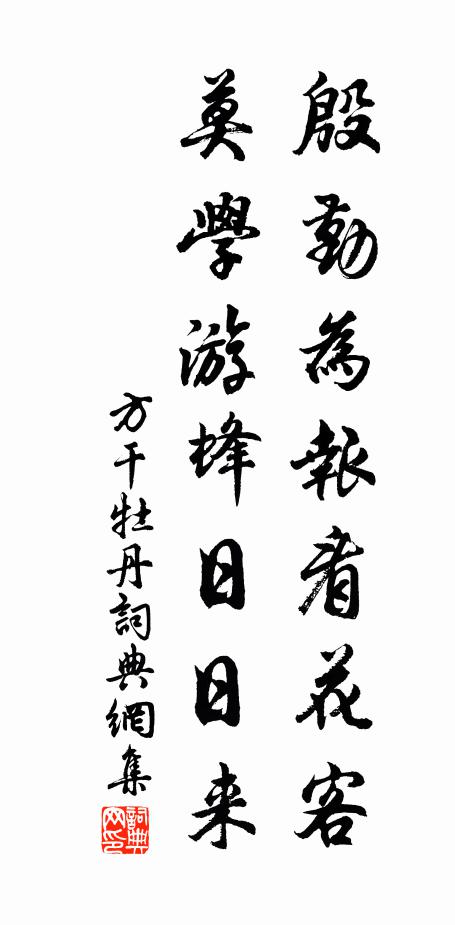 殷勤為報看花客
莫學游蜂日日来
方干牡丹詞典網集
詞典网印